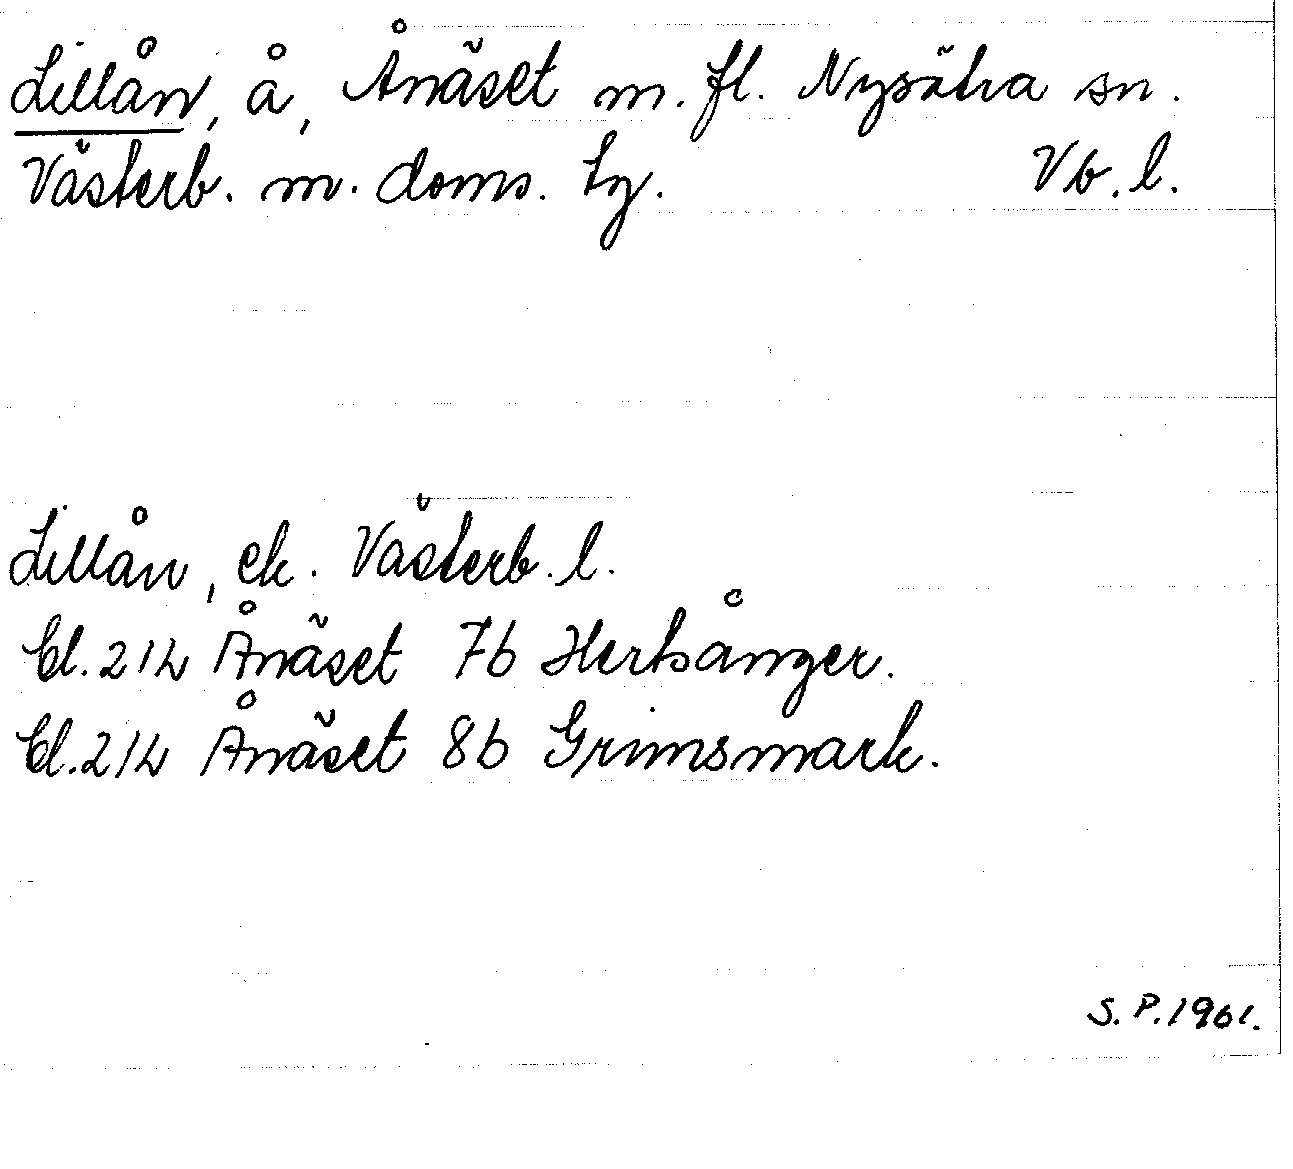 Lillån, å, Ånäset m. fl. Nysätra sn.
Västerb. m. doms. tg. Vb. l.
Lillån, ek. Västerb. l.
Bl. 21L Ånäset 7b Hertsånger.
Bl. 21L Ånäset 8b Grimsmark.
S. P. 1961.